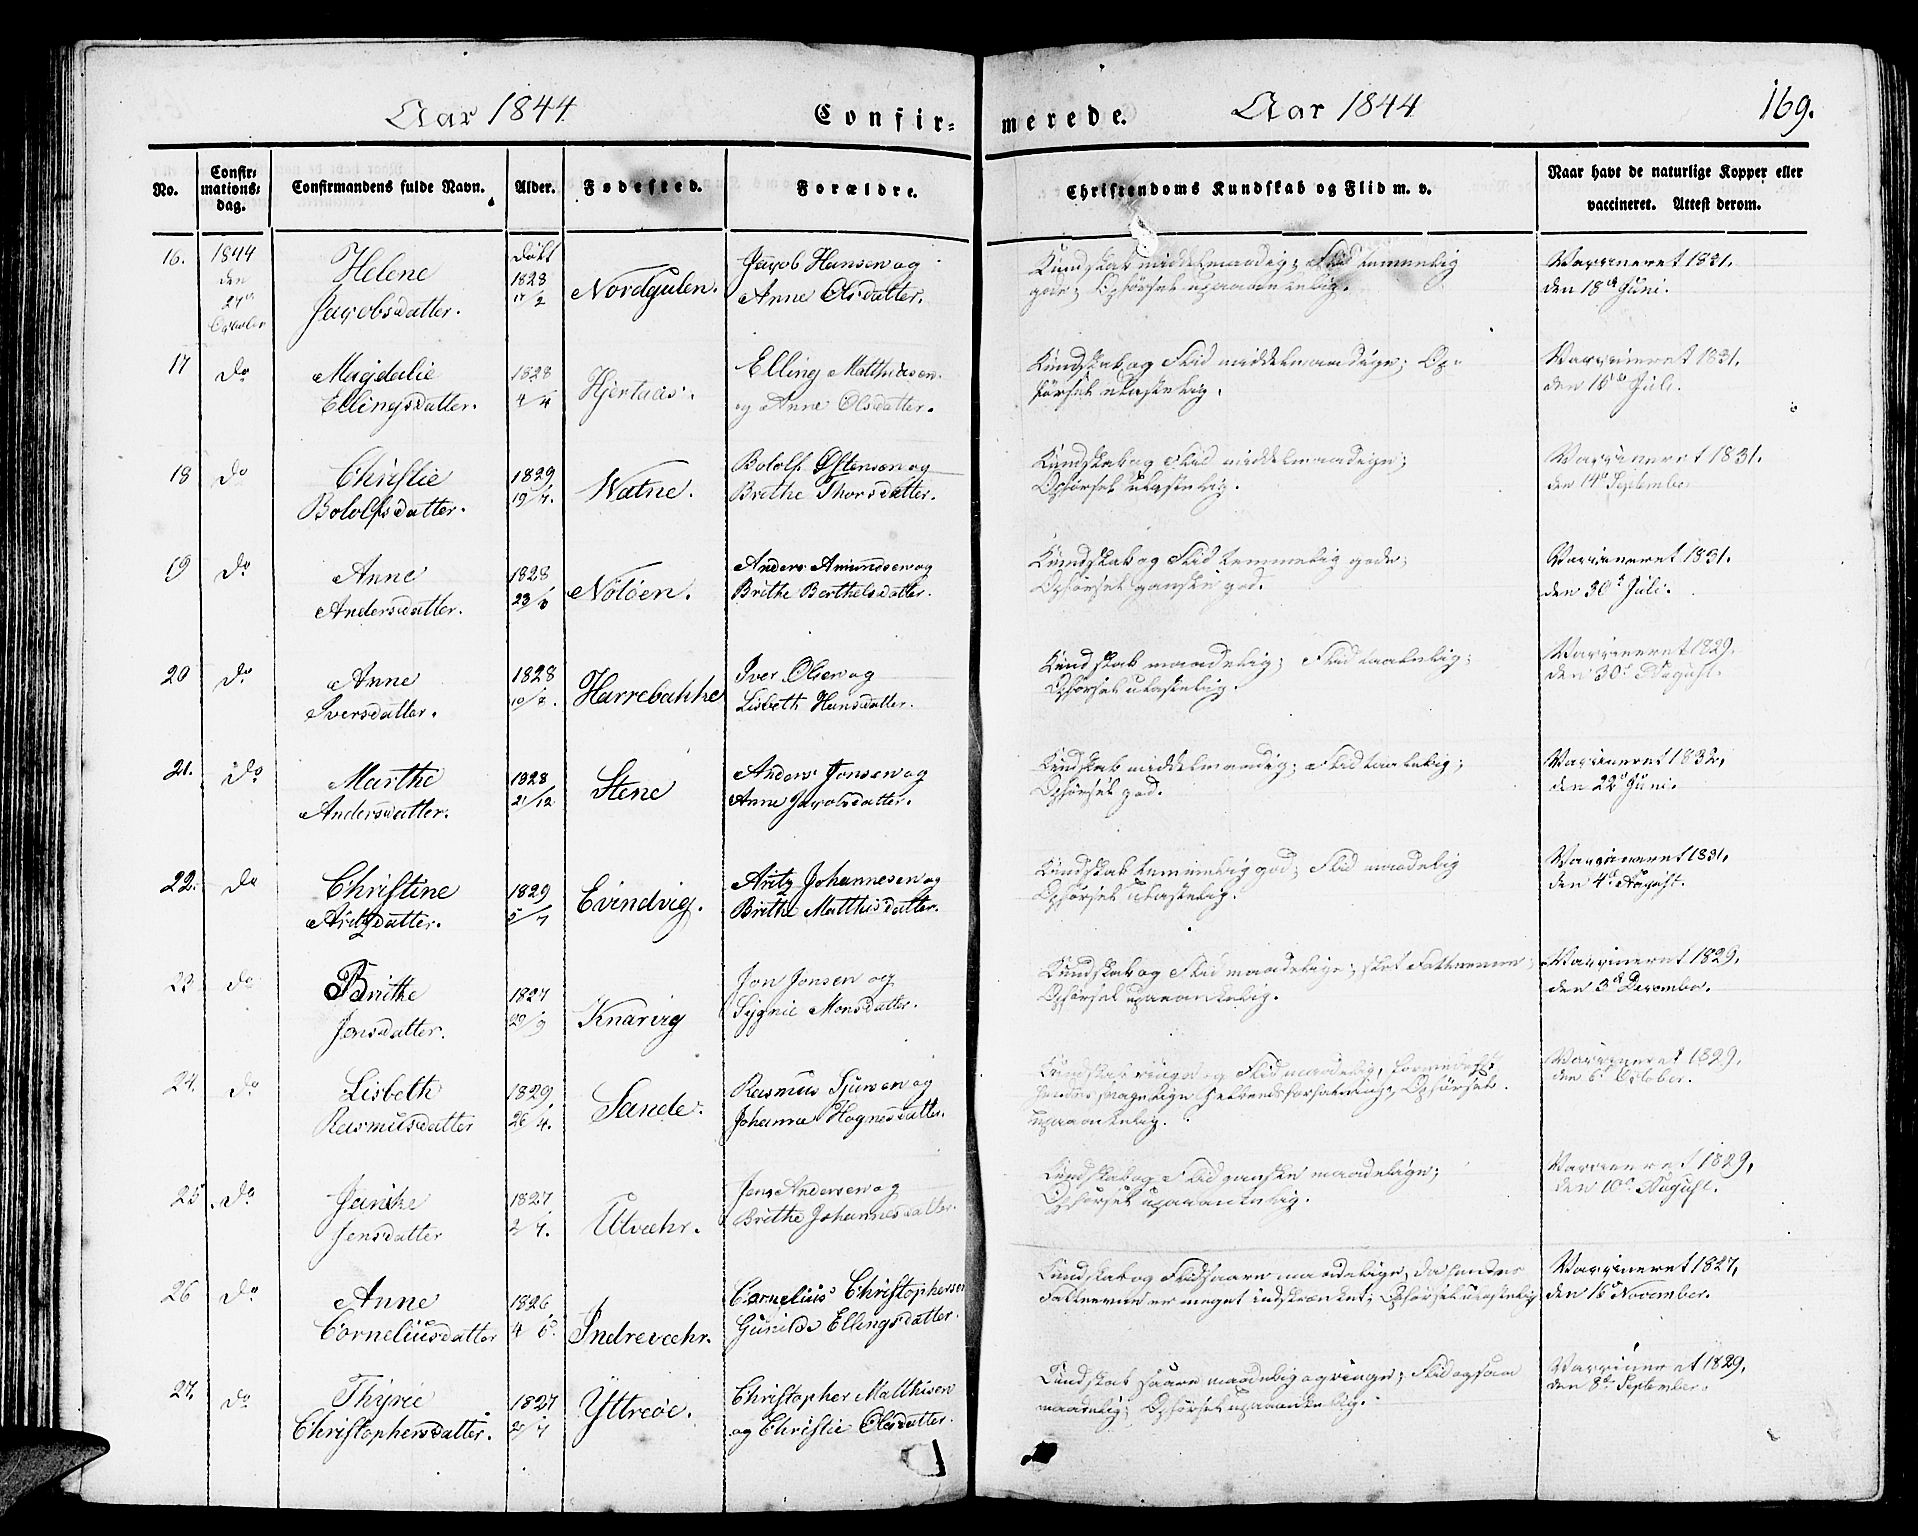 Aar 1844
Confir-
merede.
Aar 1844
169.
No.
Confir-
mations-
dag.
Confirmandens fulde Navn.
Alder.
Fødested.
Forældre.
Christendoms Kundskab og Flid m. v.
Naar havt de naturlige Kopper eller
vaccineret. Attest derom.
16.
1844
den
October
Helene
Jacobsdatter.
Døbt
1828
17/2
Nordgulen.
Jacob Hansen og
Anne Olsdatter.
Kundskab middelmaadig; Flid temmelig
god; Opførsel upaaankelig.
Vaccineret 1831.
den 18de Juni.
17
do
Magdalie
Ellingsdatter.
1828
4/4
Hjertaas.
Elling Matthiesen
og Anne Olsdatter.
Kundskab og Flid middelmaadige; Op-
førsel ulastelig.
Vaccineret 1831.
den 16de Juli.
18
do
Christie
Bololfsdatter.
1829
19/7.
Watne.
Bololf Østensen og
Brithe Thorsdatter.
Kundskab og Flid middelmaadige;
Opførsel ulastelig.
Vaccineret 1831.
den 14de September
19
do
Anne
Andersdatter.
1828
23/3
Nölöen.
Anders Amundsen og
Brithe Berthelsdatter.
Kundskab og Flid temmelig gode;
Opførsel ganske god.
Vaccineret 1831.
den 30te Juli.
20
do
Anne
Iversdatter.
1828
10/8.
Harrebakke
Iver Olsen og
Lisbeth Hansdatter.
Kundskab maadelig; Flid taalelig;
Opførsel ulastelig.
Vaccineret 1829.
den 30te August.
21.
do
Marthe
Andersdatter.
1828
21/12
Stene
Anders Jonsen og
Anne Jacobsdatter.
Kundskab middelmaadig; Flid taalelig;
Opførsel god.
Vaccineret 1832,
den 22de Juni.
22.
do
Christine
Aritzdatter.
1829
5/7
Evindvig.
Aritz Johannesen og
Brithe Matthisdatter.
Kundskab temmelig god; Flid maadelig
Opførsel ulastelig.
Vaccineret 1831,
den 4de August.
23
do
Brithe
Jonsdatter.
1827
29/9
Knarvig
Jon Jonsen og
Sygnie Monsdatter.
Kundskab og Flid maadelige; slet Fatteevne;
Opførsel upaaankelig.
Vaccineret 1829,
den 3de December.
24.
do
Lisbeth
Rasmusdatter
1829
26/4.
Sande.
Rasmus Sjursen og
Johanna Hognesdatter.
Kundskab ringe og Flid maadelig,
hendes svagelige Helbreds forfatning, Opførsel
upaaankelig.
Vaccineret 1829.
den 6te October.
25.
do
Janike
Jensdatter
1827
2/7.
Utvæhr.
Jens Andersen og
Brithe Johannesdatter.
Kundskab og Flid ganske maadelige;
Opførsel upaaankelig.
Vaccineret 1829,
den 10de August.
26
do
Anne
Corneliusdatter
1826
4 6.
Indrevæhr.
Cornelius Christophersen
Gunilde Ellingsdatter.
Kundskab og Flid saare maadelige, da hendes
Fatteevne er meget indskrænket; Opførsel ulastelig
Vaccineret 1827,
den 16de November.
27.
do
Thyrie
Christophersdatter.
1827
2/7
Yttreöe.
Christopher Matthisen
og Christie Olsdatter.
Kundskab saare maadelig og ringe; Flid ogsaa
maadelig; Opførsel upaaankelig.
Vaccineret 1829.
den 8de September.